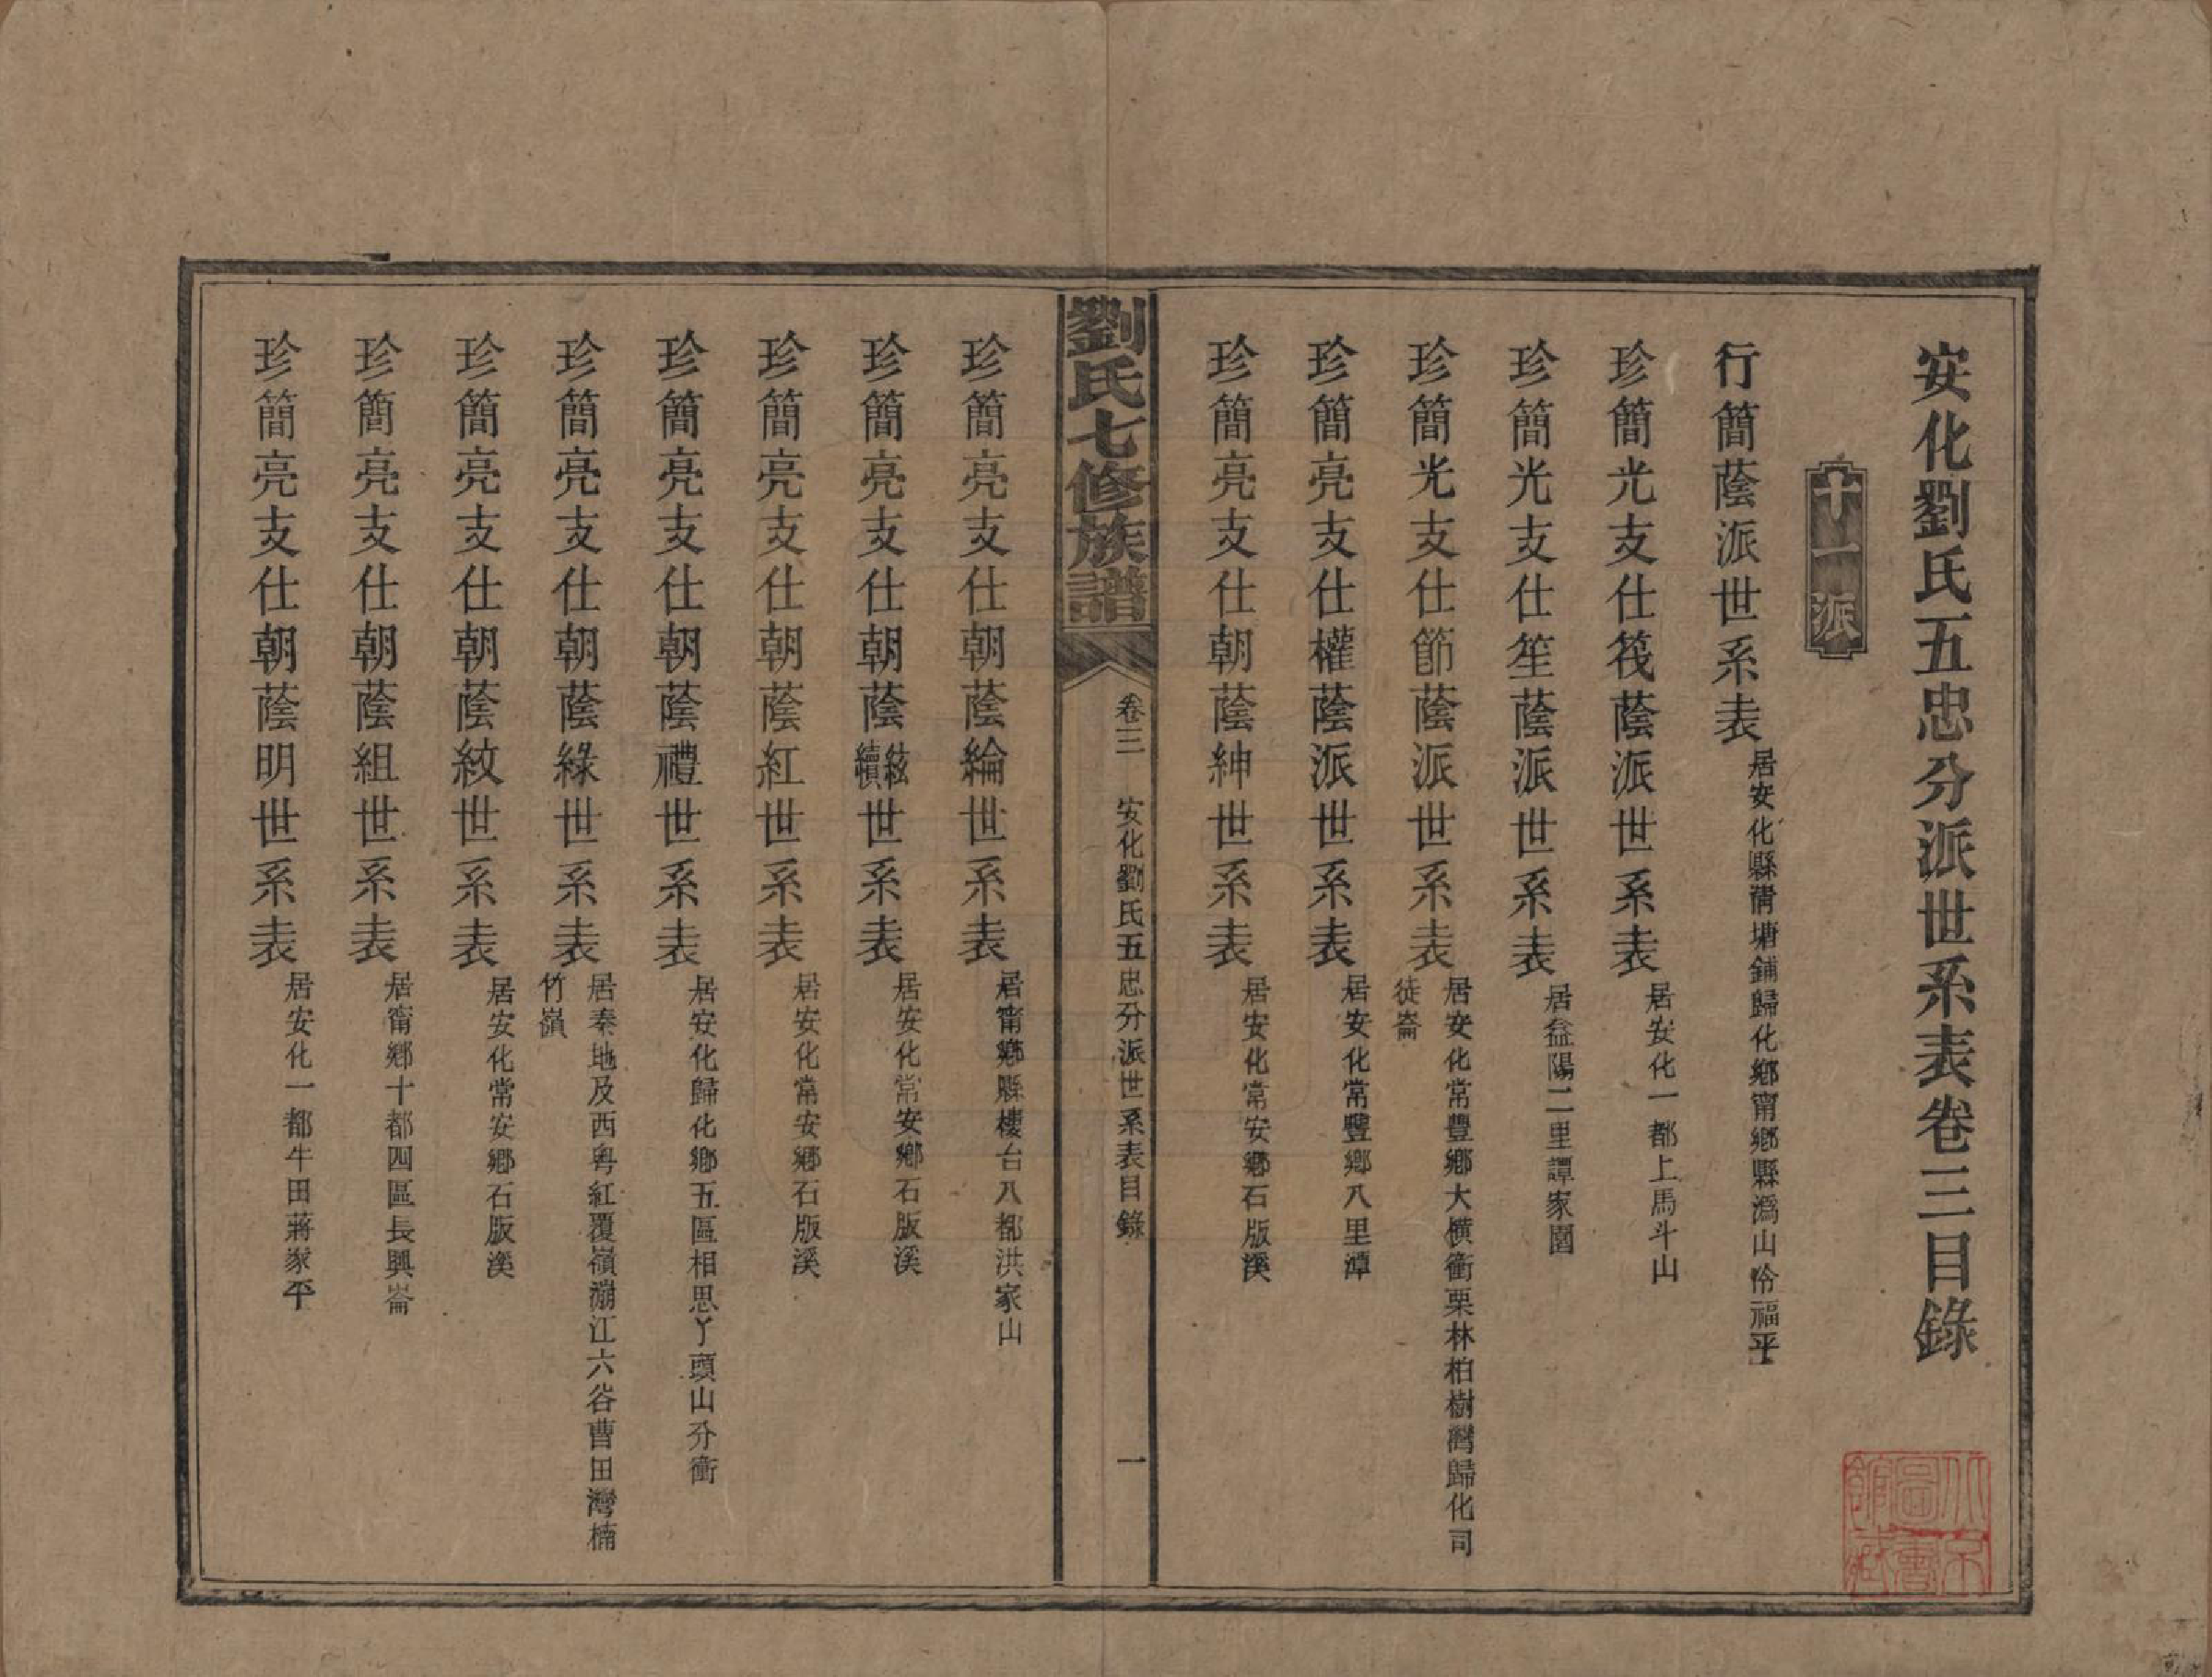 安化劉氏五忠分派世系表卷三目錄
十一派
行簡蔭派世系表 居安化縣清塘鋪歸化鄉甯鄉縣溈山冷福平
珍簡光支仕筏蔭派世系表 居安化一都上馬斗山
珍簡光支仕笙蔭派世系表 居益陽二里譚家園
珍簡光支仕節蔭派世系表 居安化常豐鄉大橫衝栗林柏樹灣歸化司
徒崙
珍簡亮支仕權蔭派世系表 居安化常豐鄉八里潭
珍簡亮支仕朝蔭紳世系表 居安化常安鄉石版溪
劉氏七修族譜 卷三 安化劉氏五忠分派世系表目錄 一
珍簡亮支仕朝蔭綸世系表 居甯鄉縣樓台八都洪家山
珍簡亮支仕朝蔭絃續世系表 居安化常安鄉石版溪
珍簡亮支仕朝蔭紅世系表 居安化常安鄉石版溪
珍簡亮支仕朝蔭禮世系表 居安化歸化鄉五區相思丫頭山分衝
珍簡亮支仕朝蔭綠世系表 居秦地及西粵紅覆嶺瀰江六谷曹田灣楠
竹嶺
珍簡亮支仕朝蔭紋世系表 居安化常安鄉石版溪
珍簡亮支仕朝蔭組世系表 居甯鄉十都四區長興崙
珍簡亮支仕朝蔭明世系表 居安化一都牛田蔣家平
北京圖書館藏